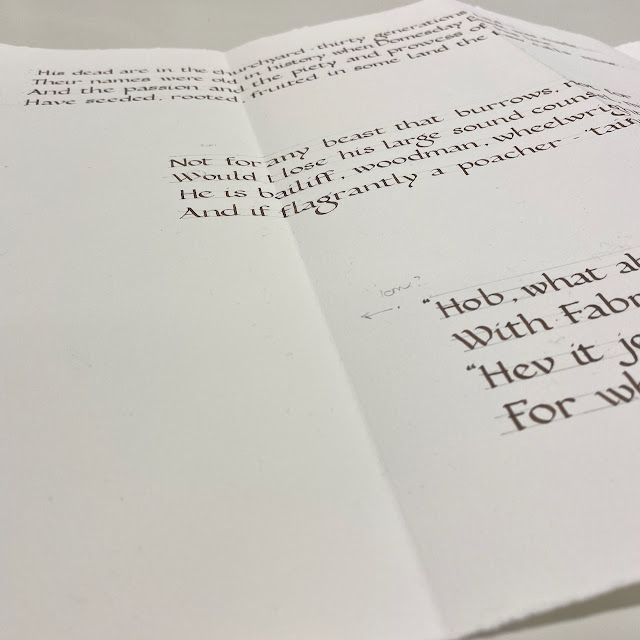 His dead are in the churchyard - thirty generations
Their names were old in history when Domesday
And the passion and the piety and prowess of
Have seeded, rooted, fruited in some land the
Not for any beast that burrows,
Would I lose his large sound
He is bailiff, woodman,
And if flagrantly a poacher -
low?
“Hob, what
With
“Hev it
For